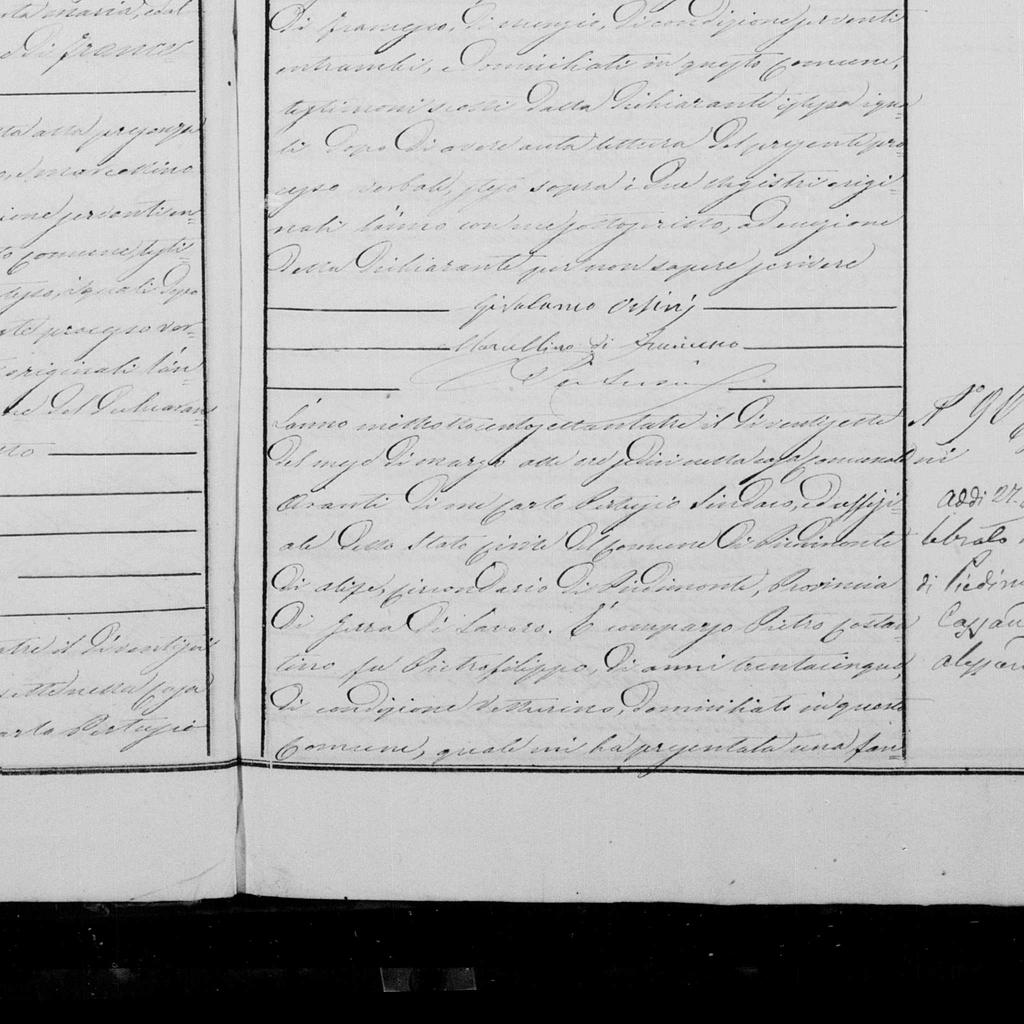 ta maria, ed al
di frances
ta alla presenza
on marcellino
ione serventi en
to comune, testi
steso, i quali dopo
nte processo ver
originali l'an
ne del dichiaran
tto
atre il di ventiset
sette nella casa
arlo Pertugio
di francesco, di condizione serventi
entrambi, e domiciliati in questo comune,
testimoni scelti dalla dichiarante istessa i qua
li dopo di avere auta lettura del presente pro
cesso verbale, steso sopra i due registri origi
nali l'anno con me sottoscristo, ad eccezione
della dichiarante per non sapere scrivere
Girolamo Orsini
Marcellino di Francesco
L'anno milleottocentosettantatre il di ventisette
del mese di marzo alle ore sedici nella casa comunale
Avanti di me Carlo Pertugio Sindaco, ed uffizi
ale dello Stato Civile del Comune di Piedimonte
di alife, circondario di Piedimonte, Provincia
di Terra di Lavoro. È comparso Pietro Costan
tino fu Pietrofilippo, di anni trentacinque,
di condizione Vetturino, domiciliato in questo
Comune, quale mi ha presentata una fan
N° 96
ni
Addi 27
lebrato
di Piedim
Cassan
Alessan